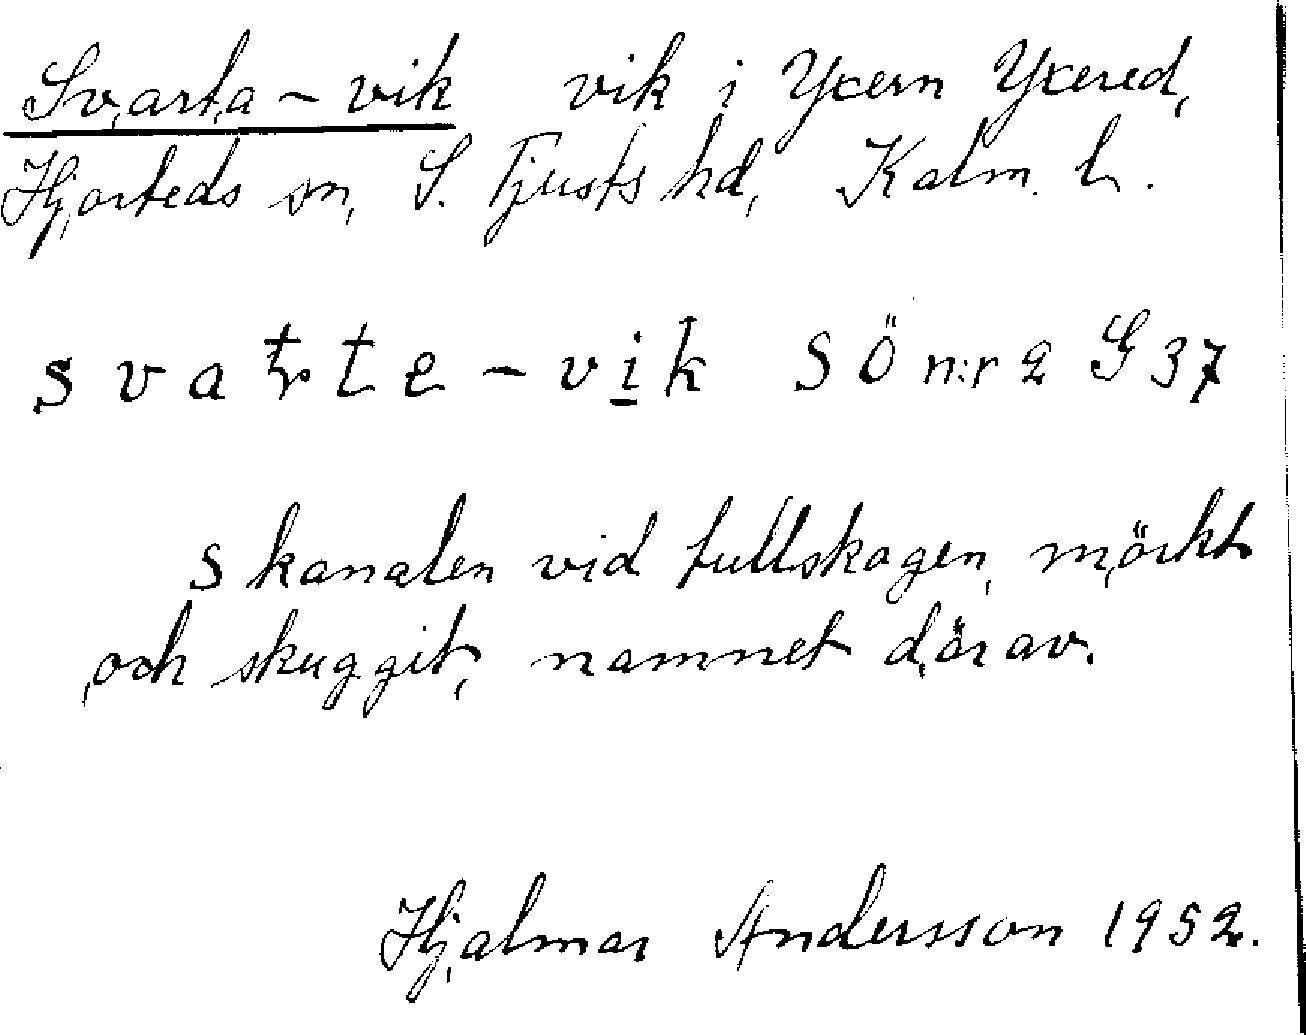 Svarta-vik vik i Yxern Yxered,
Hjorteds sn, S. Tjusts hd, Kalm. l.
svaṭṛte-vik SÖ n:r 2 G 37
S kanalen vid fullskogen, mörkt
och skuggit, namnet därav.
Hjalmar Andersson 1952.